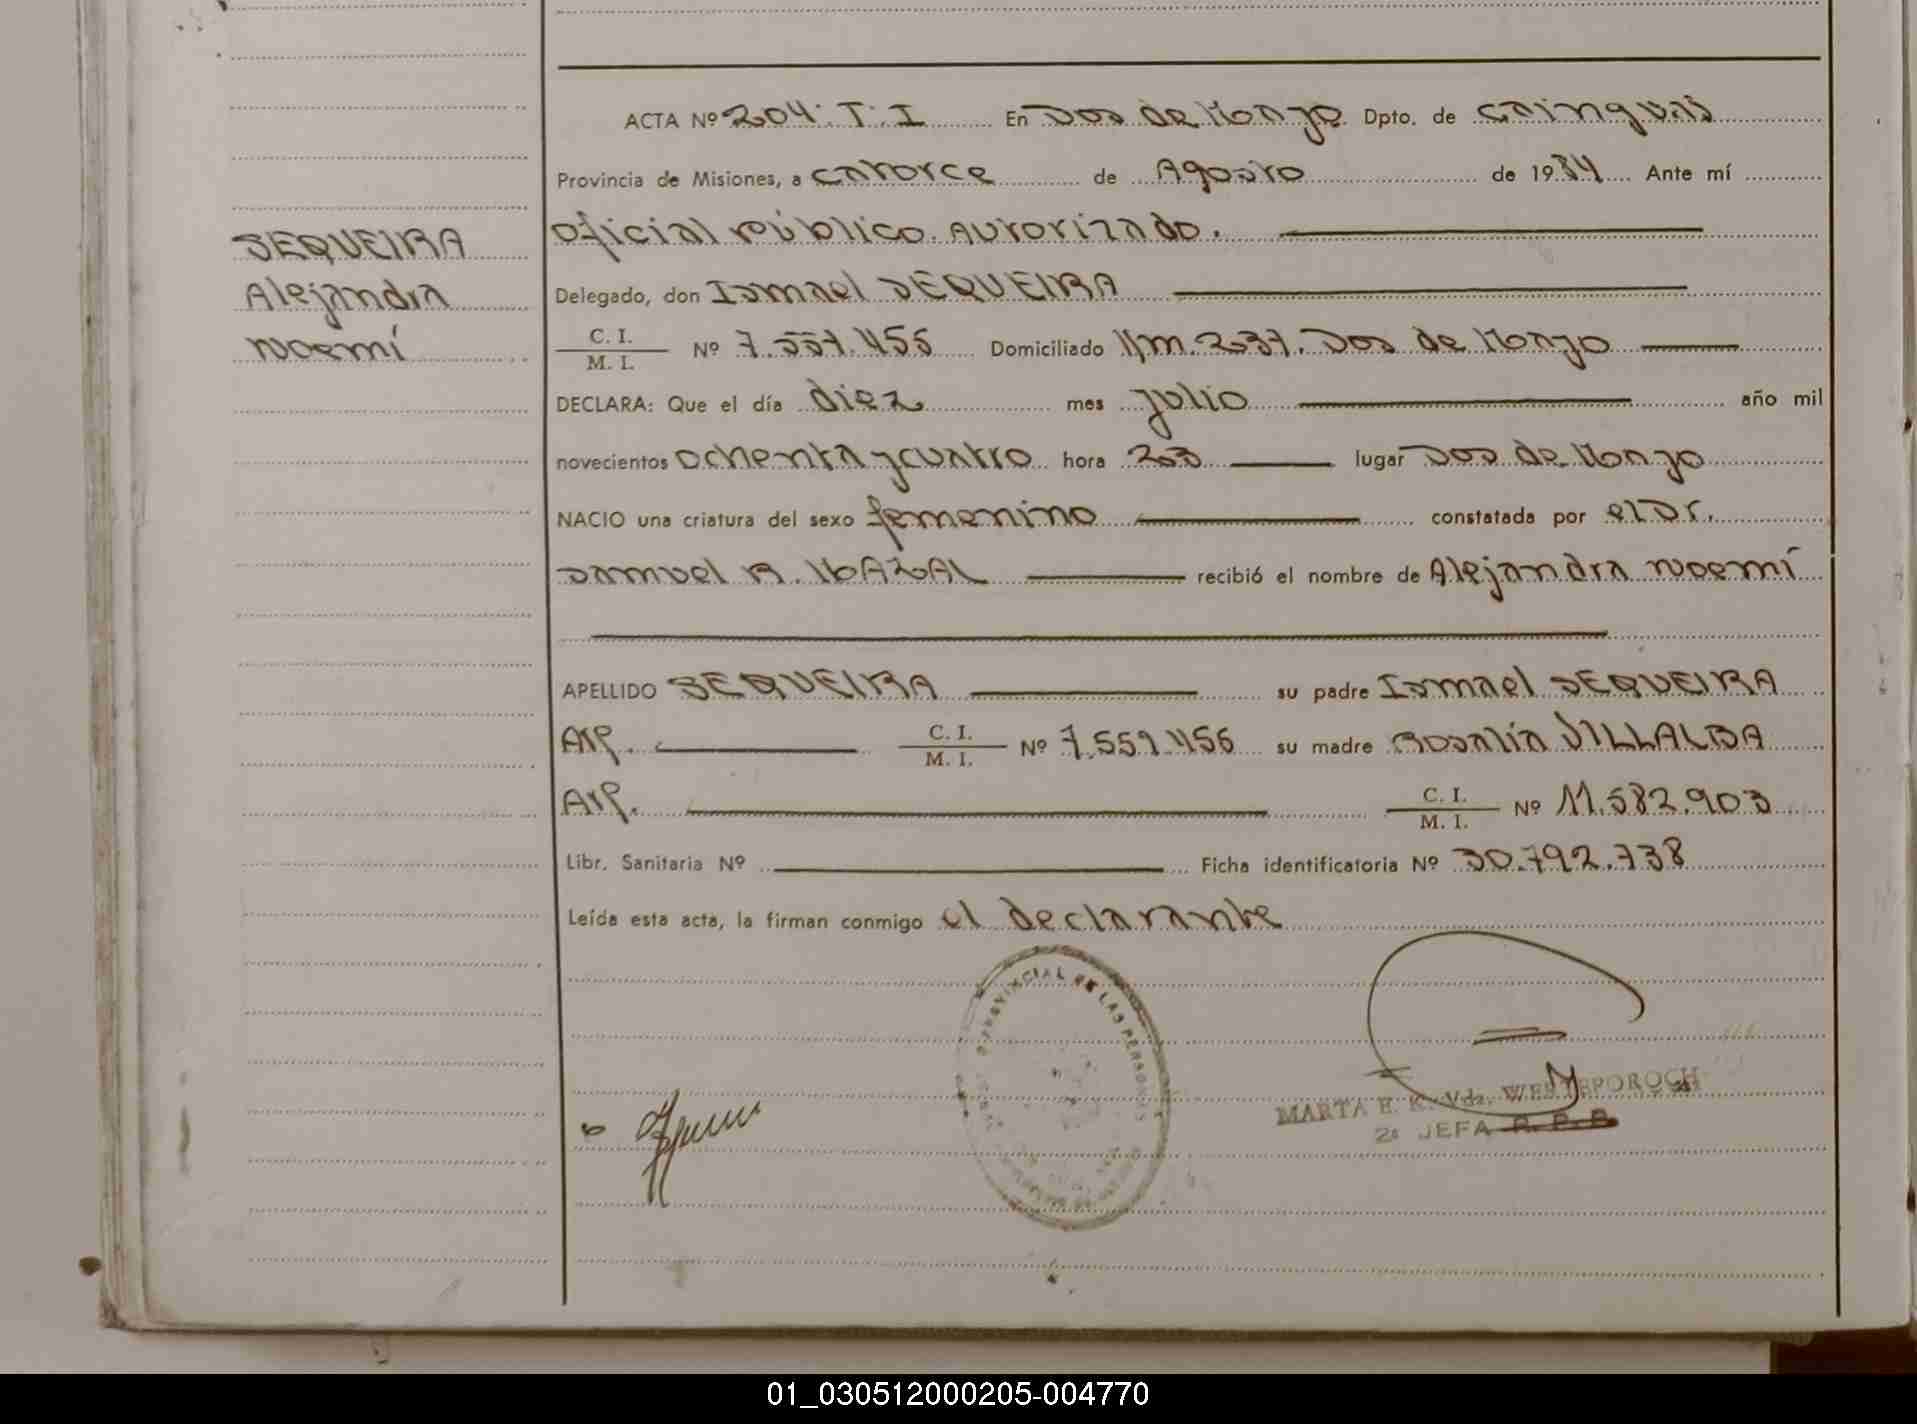 ACTA Nº 204. T. I En Dos de Mayo Dpto. de Cainguás
Provincia de Misiones, a catorce de Agosto de 1984 Ante mí
Oficial Público Autorizado.
SEQUEIRA
Alejandra
Noemí
Delegado, don Ismael SEQUEIRA
C. I.
M. I. Nº 7.551.455 Domiciliado Km. 237. Dos de Mayo
DECLARA: Que el día diez mes julio año mil
novecientos ochenta y cuatro hora 203 lugar Dos de Mayo
NACIO una criatura del sexo femenino constatada por el Dr.
Samuel R. recibió el nombre de Alejandra Noemí
APELLIDO SEQUEIRA su padre Ismael SEQUEIRA
Arg. C. I.
M. I. Nº 7.551.455 su madre Rosalía VILLALBA
Arg. C. I.
M. I. Nº 11.582.903
Libr. Sanitaria Nº Ficha identificatoria Nº 30.792.738
Leída esta acta, la firman conmigo el declarante
PROVINCIAL DE LAS PERSONAS
MARTA E. K. Vda. WESTEPOROCH
2º JEFA R. P. P.
01_030512000205-004770